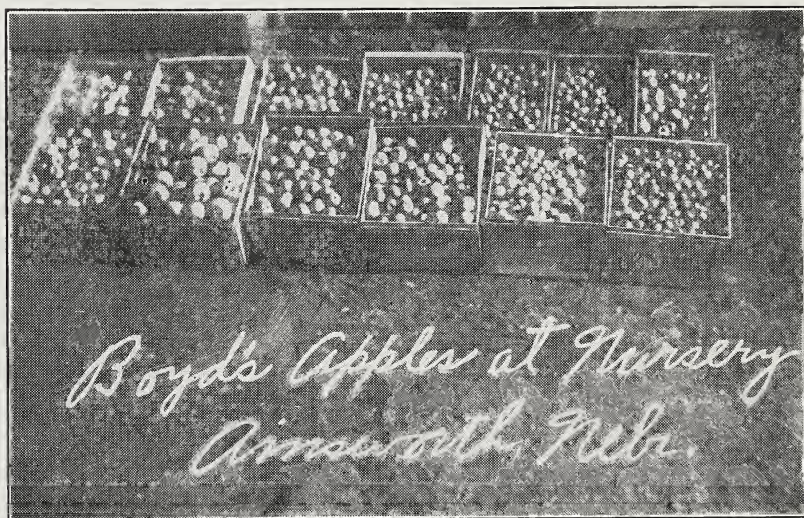 Boyd's Apples at Nursery
Ainsworth, Nebr.